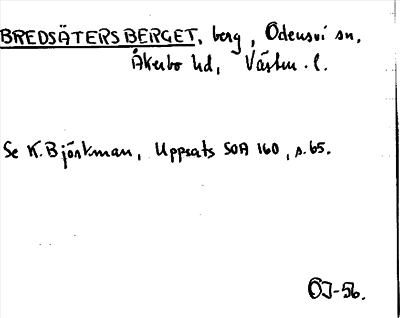 BREDSÄTERSBERGET, berg, Odensvi sn,
Åkerbo hd, Västm. l.
Se K. Björkman, Uppsats SOA 160, s. 65.
ÖJ-56.